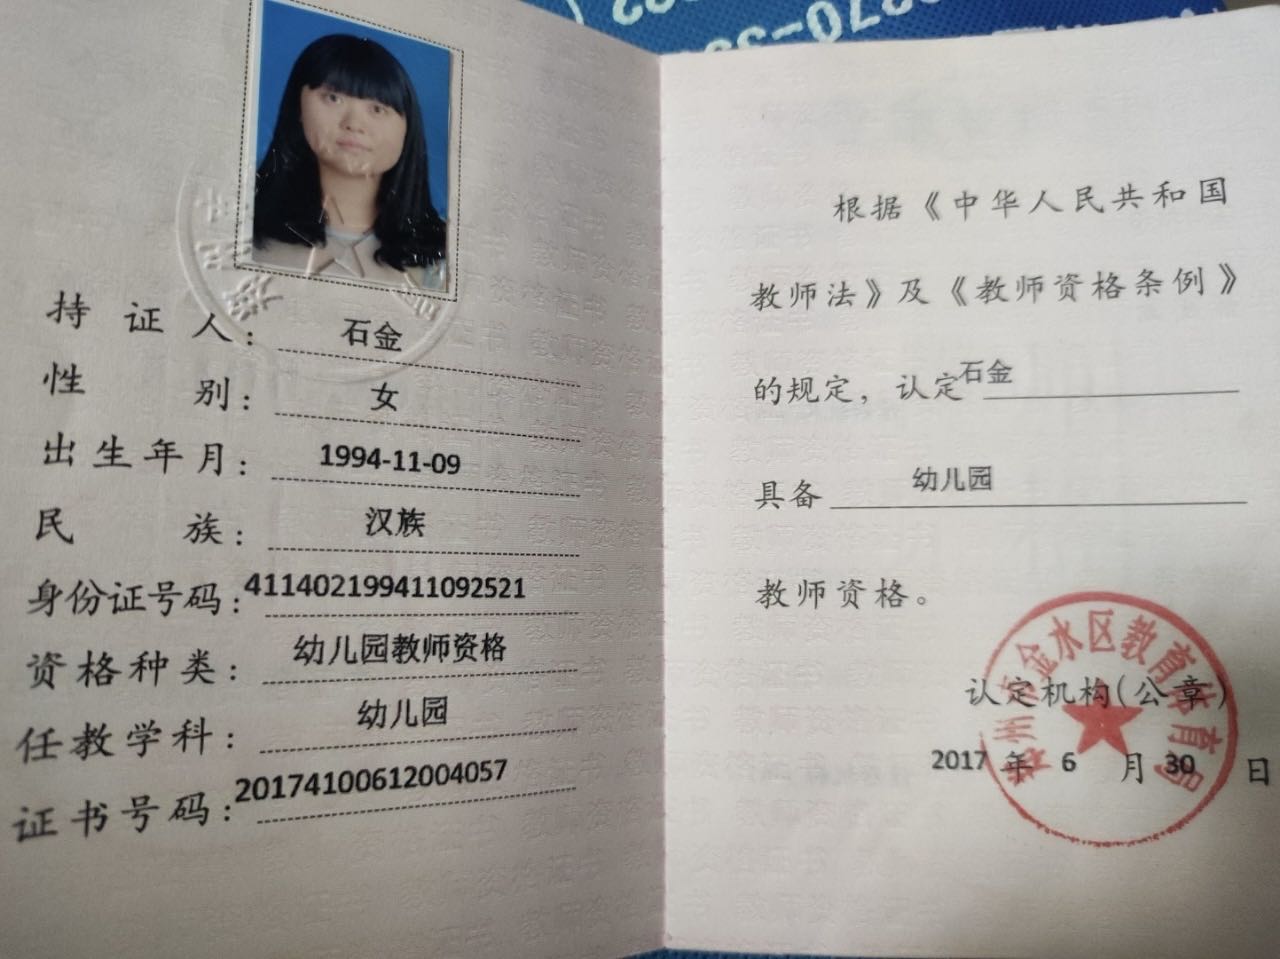 持证人：石金
性别：女
出生年月：1994-11-09
民族：汉族
身份证号码：411402199411092521
资格种类：幼儿园教师资格
任教学科：幼儿园
证书号码：20174100612004057
根据《中华人民共和国
教师法》及《教师资格条例》
的规定，认定石金
具备 幼儿园
教师资格。
州市金水区教育体育局
认定机构（公章）
2017 年 6 月 30 日